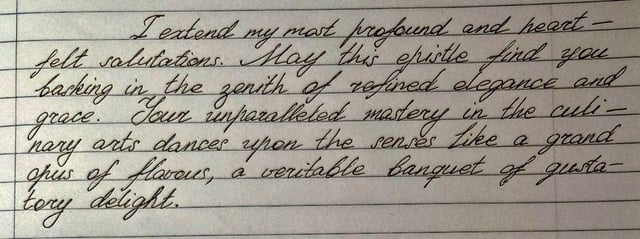 I extend my most profound and heart-
felt salutations. May this epistle find you
basking in the zenith of refined elegance and
grace. Your unparalleled mastery in the culi-
nary arts dances upon the senses like a grand
opus of flavous, a veritable banquet of gusta-
tory delight.